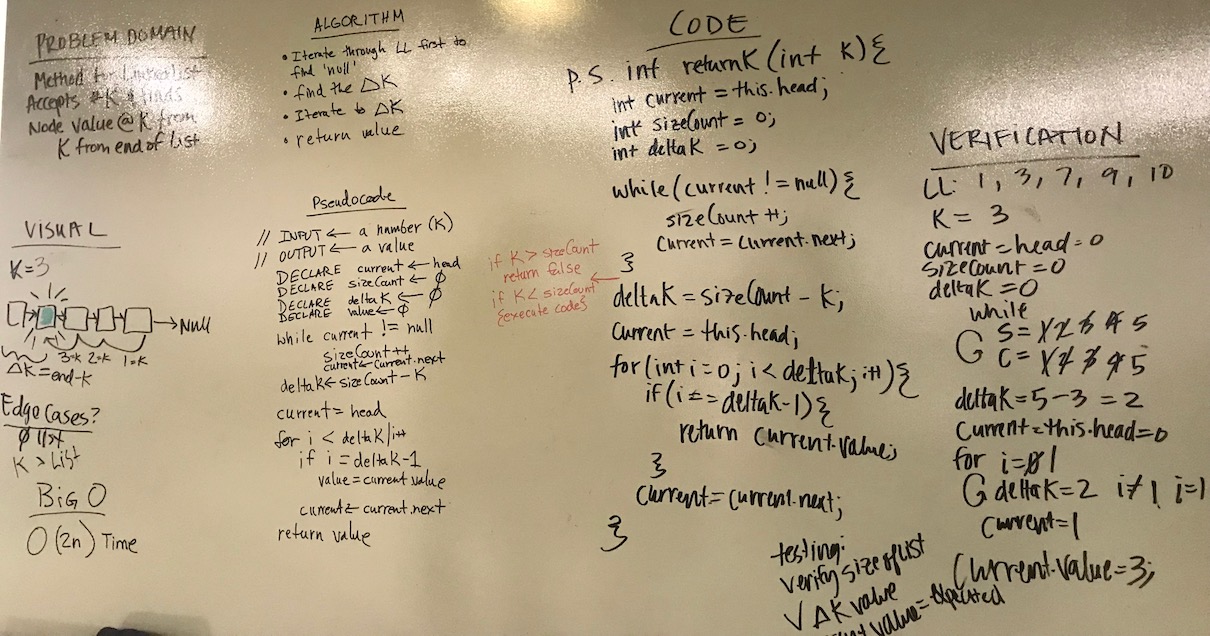 PROBLEM DOMAIN
Method for LinkedList
Accepts #K & finds
Node value @ K from
K from end of List
VISUAL
K=3
→Null
3=K 2=K 1=K
ΔK=end-K
Edge Cases?
Ø list
K > List
Big O
O(2n) Time
ALGORITHM
• Iterate through LL first to
find 'null'
• find the ΔK
• Iterate to ΔK
• return value
Pseudocode
// INPUT ← a number (K)
// OUTPUT ← a value
DECLARE current ← head
DECLARE sizeCount ← Ø
DECLARE deltaK ← Ø
DECLARE value ← Ø
while current != null
sizeCount++
current ← current.next
deltaK ← sizeCount - K
current = head
for i < deltaK/i++
if i = deltaK-1
value = current value
current ← current.next
return value
if K > sizeCount
return false
if K < sizeCount
{execute code}
CODE
P.S. int returnK (int K){
int current = this.head;
int sizeCount = 0;
int deltaK = 0;
while(current != null){
sizeCount++;
current = current.next;
}
deltaK = sizeCount - K;
current = this.head;
for(int i=0; i < deltaK; i++){
if(i == deltaK-1){
return current.value;
}
current = current.next;
}
testing:
verify size of list
√ ΔK value
value = expected
VERIFICATION
LL: 1, 3, 7, 9, 10
K = 3
current = head = 0
sizeCount = 0
deltaK = 0
while
S = 1 2 3 4 5
C = 1 2 3 4 5
deltaK = 5-3 = 2
current = this.head = 0
for i = 0 1
deltaK = 2 i ≠ 1 i = 1
current = 1
Current.value = 3;